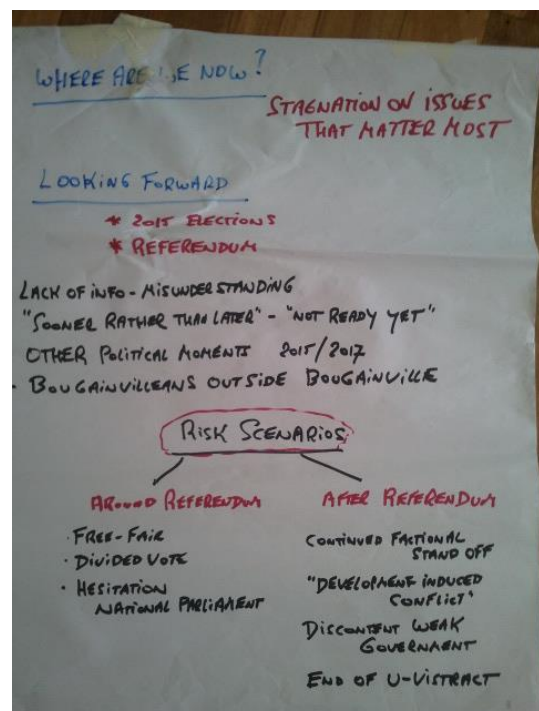 WHERE ARE WE NOW?
STAGNATION ON ISSUES
THAT MATTER MOST
LOOKING FORWARD
* 2015 ELECTIONS
* REFERENDUM
LACK OF INFO - MISUNDERSTANDING
"SOONER RATHER THAN LATER" - "NOT READY YET"
OTHER POLITICAL MOMENTS 2015/2017
· BOUGAINVILLEANS OUTSIDE BOUGAINVILLE
RISK SCENARIOS
AROUND REFERENDUM
· FREE-FAIR
· DIVIDED VOTE
· HESITATION
NATIONAL PARLIAMENT
AFTER REFERENDUM
CONTINUED FACTIONAL
STAND OFF
"DEVELOPMENT INDUCED
CONFLICT"
DISCONTENT WEAK
GOVERNMENT
END OF U-VISTRACT